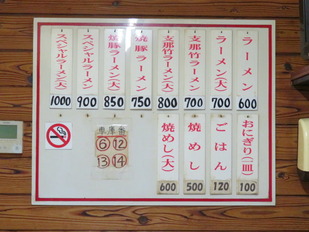 ラーメン
600
ラーメン(大)
700
支那竹ラーメン
700
支那竹ラーメン(大)
800
焼豚ラーメン
750
焼豚ラーメン(大)
850
スペシャルラーメン
900
スペシャルラーメン(大)
1000
おにぎり(一皿)
100
ごはん
120
焼めし
500
焼めし(大)
600
⑥ ⑫
⑬ ⑭